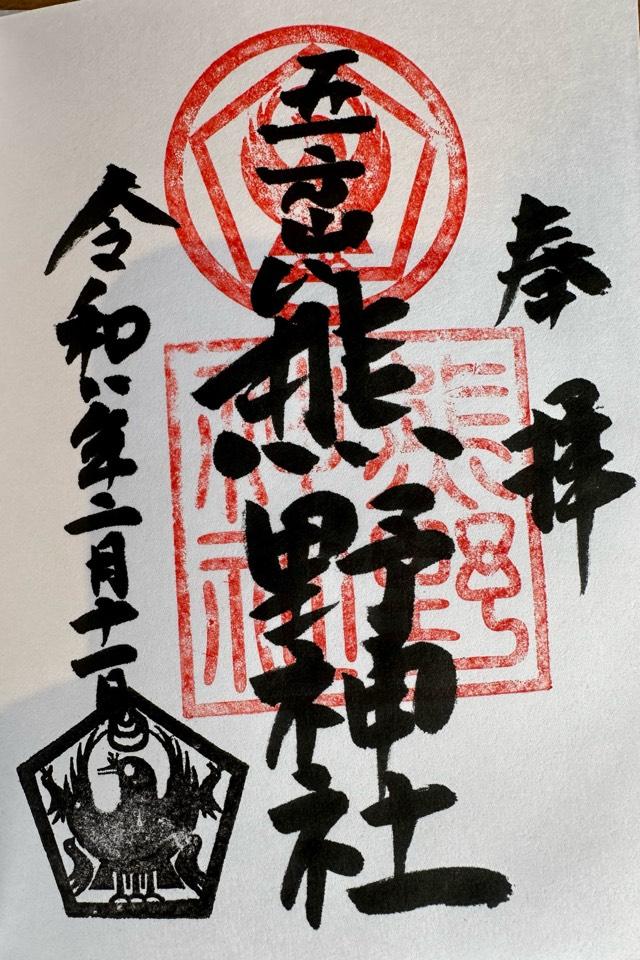 奉拝
五方山
熊野神社
熊野
神社
令和八年二月十一日